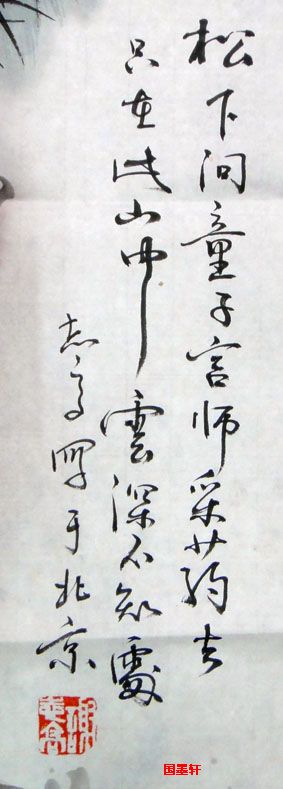 松下问童子言师采药去
只在此山中雲深不知處
志高写于北京
国墨轩